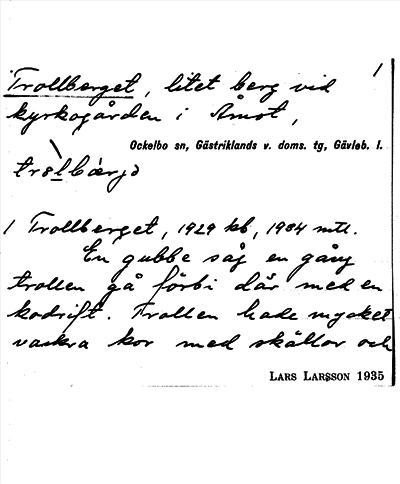 Trollberget, litet berg vid 1
kyrkogården i Åmot,
Ockelbo sn, Gästriklands v. doms. tg, Gävleb. l.
1 Trollberget, 1929 kb, 1934 mtl.
En gubbe såg en gång
trollen gå förbi där med en
kodrift. Trollen hade mycket
vackra kor med skällor och
LARS LARSSON 1935